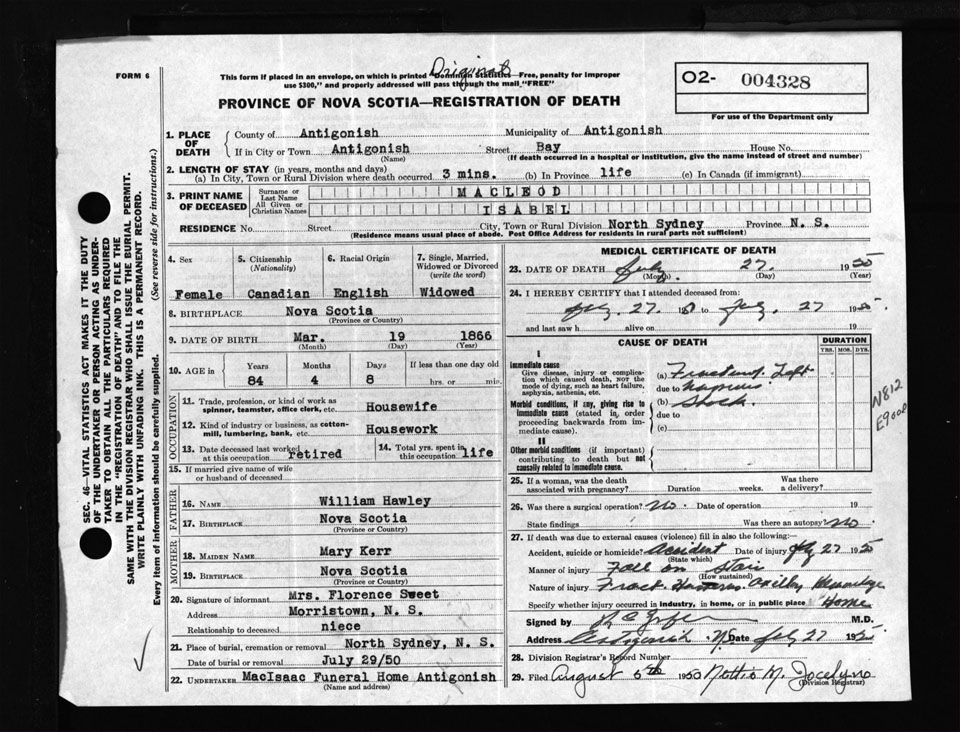 FORM 6
Original
This form if placed in an envelope, on which is printed "Dominion Statistics—Free, penalty for improper
use $300," and properly addressed will pass through the mail "FREE"
PROVINCE OF NOVA SCOTIA—REGISTRATION OF DEATH
O2- 004328
For use of the Department only
SEC. 46—VITAL STATISTICS ACT MAKES IT THE DUTY
OF THE UNDERTAKER OR PERSON ACTING AS UNDER-
TAKER TO OBTAIN ALL THE PARTICULARS REQUIRED
IN THE "REGISTRATION OF DEATH" AND TO FILE THE
SAME WITH THE DIVISION REGISTRAR WHO SHALL ISSUE THE BURIAL PERMIT.
WRITE PLAINLY WITH UNFADING INK. THIS IS A PERMANENT RECORD.
Every item of information should be carefully supplied. (See reverse side for instructions.)
1. PLACE OF DEATH
County of Antigonish Municipality of Antigonish
If in City or Town Antigonish Street Bay House No.
(Name) (If death occurred in a hospital or institution, give the name instead of street and number)
2. LENGTH OF STAY (in years, months and days)
(a) In City, Town or Rural Division where death occurred 3 mins. (b) In Province life (c) In Canada (if immigrant)
3. PRINT NAME OF DECEASED
Surname or Last Name MACLEOD
All Given or Christian Names ISABEL
RESIDENCE No. Street City, Town or Rural Division North Sydney Province N. S.
(Residence means usual place of abode. Post Office Address for residents in rural parts not sufficient)
4. Sex 5. Citizenship (Nationality) 6. Racial Origin 7. Single, Married, Widowed or Divorced (write the word)
Female Canadian English Widowed
8. BIRTHPLACE Nova Scotia
(Province or Country)
9. DATE OF BIRTH Mar. 19 1866
(Month) (Day) (Year)
10. AGE in Years Months Days If less than one day old
84 4 8 hrs. or min.
OCCUPATION
11. Trade, profession, or kind of work as spinner, teamster, office clerk, etc. Housewife
12. Kind of industry or business, as cotton-mill, lumbering, bank, etc. Housework
13. Date deceased last worked at this occupation retired 14. Total yrs. spent in this occupation life
15. If married give name of wife or husband of deceased
FATHER
16. NAME William Hawley
17. BIRTHPLACE Nova Scotia
(Province or Country)
MOTHER
18. MAIDEN NAME Mary Kerr
19. BIRTHPLACE Nova Scotia
(Province or Country)
20. Signature of informant Mrs. Florence Sweet
Address Morristown, N. S.
Relationship to deceased niece
21. Place of burial, cremation or removal North Sydney, N. S.
Date of burial or removal July 29/50
22. UNDERTAKER MacIsaac Funeral Home Antigonish
(Name and address)
MEDICAL CERTIFICATE OF DEATH
23. DATE OF DEATH July 27. 1950
(Month) (Day) (Year)
24. I HEREBY CERTIFY that I attended deceased from:
July. 27. 1950 to July. 27 1950
and last saw h alive on 19
CAUSE OF DEATH
DURATION
YRS. MOS. DYS.
I
Immediate cause
Give disease, injury or complication which caused death, not the mode of dying, such as heart failure, asphyxia, asthenia, etc.
(a) Fractured Left
due to humerus
Morbid conditions, if any, giving rise to immediate cause (stated in order proceeding backwards from immediate cause).
(b) Shock.
due to
(c)
II
Other morbid conditions (if important) contributing to death but not causally related to immediate cause.
N812
E9000
25. If a woman, was the death associated with pregnancy? Duration weeks. Was there a delivery?
26. Was there a surgical operation? No. Date of operation 19
State findings Was there an autopsy? No.
27. If death was due to external causes (violence) fill in also the following:—
Accident, suicide or homicide? Accident Date of injury July 27 1950
(State which)
Manner of injury Fall on Stair
(How sustained)
Nature of injury Fract. Humerus. Axillary Hemorrhage
Specify whether injury occurred in industry, in home, or in public place Home
Signed by M.D.
Address Antigonish N.S. Date July 27 1950
28. Division Registrar's Record Number
29. Filed August 5th 1950 Nettie M. Jocelyn
(Division Registrar)